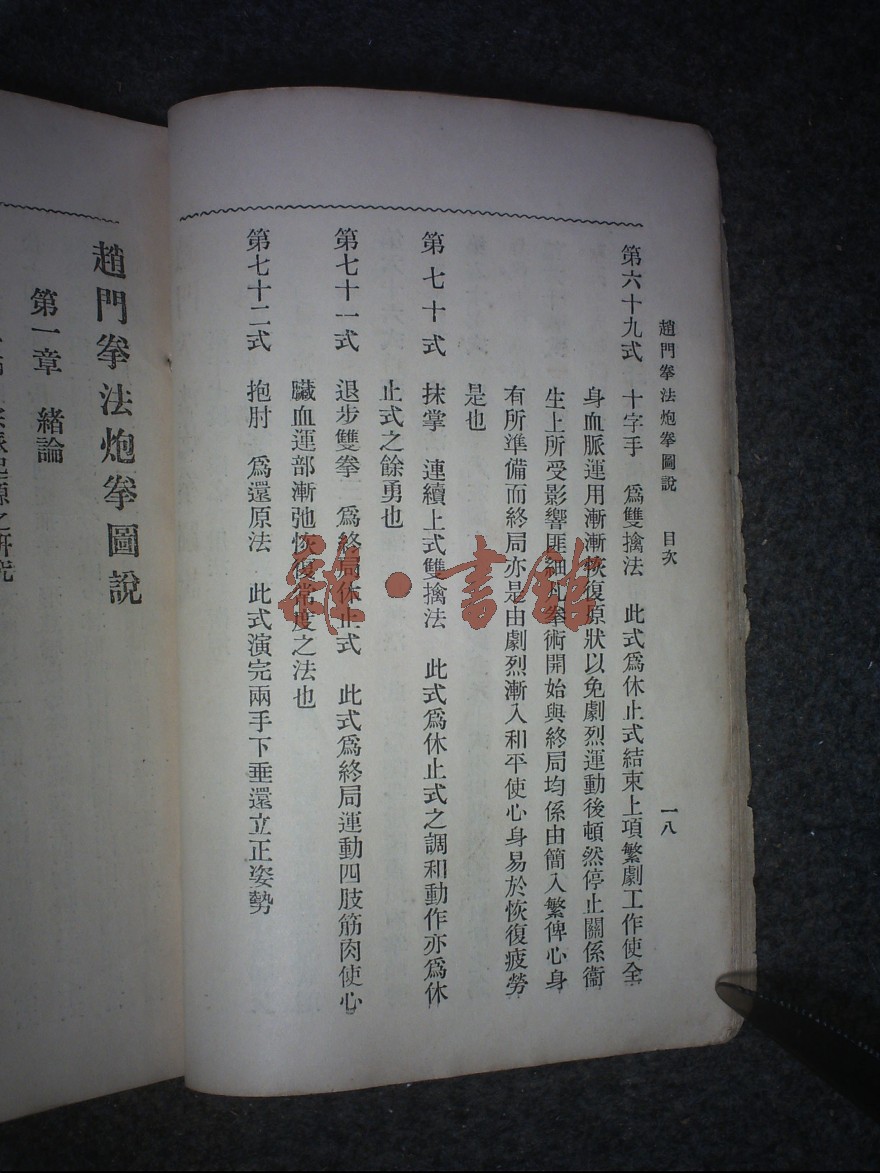 趙門拳法炮拳圖說 目次 一八
第六十九式 十字手 爲雙擒法 此式爲休止式結束上項繁劇工作使全
身血脈運用漸漸恢復原狀以免劇烈運動後頓然停止關係衞
生上所受影響匪細凡拳術開始與終局均係由簡入繁俾心身
有所準備而終局亦是由劇烈漸入和平使心身易於恢復疲勞
是也
第七十式 抹掌 連續上式雙擒法 此式爲休止式之調和動作亦爲休
止式之餘勇也
第七十一式 退步雙拳 爲終局休止式 此式爲終局運動四肢筋肉使心
臟血運部漸弛恢復常度之法也
第七十二式 抱肘 爲還原法 此式演完兩手下垂還立正姿勢
趙門拳法炮拳圖說
第一章 緒論
之研究
雜·書館